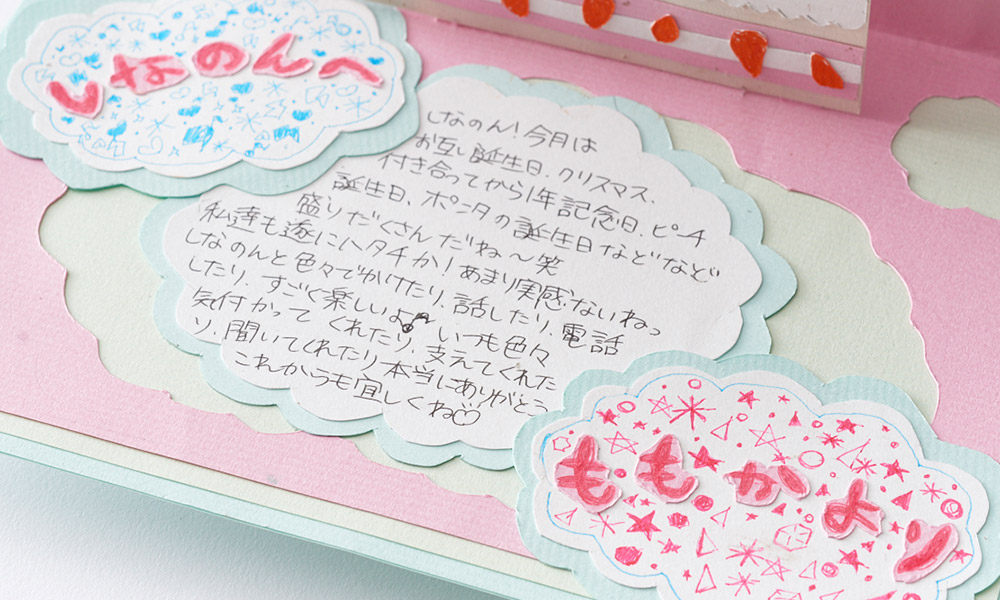 しなのんへ
しなのん！今月は
お互い誕生日、クリスマス、
付き合ってから1年記念日、ピーチ
誕生日、ポニタの誕生日などなど
盛りだくさんだね〜笑
私達も遂にハタチか！あまり実感ないねっ
しなのんと色々でかけたり、話したり、電話
したり、すごく楽しいよ♪ いつも色々
気付かってくれたり、支えてくれた
り、聞いてくれたり本当にありがとう
これからも宜しくね♡
ももかより